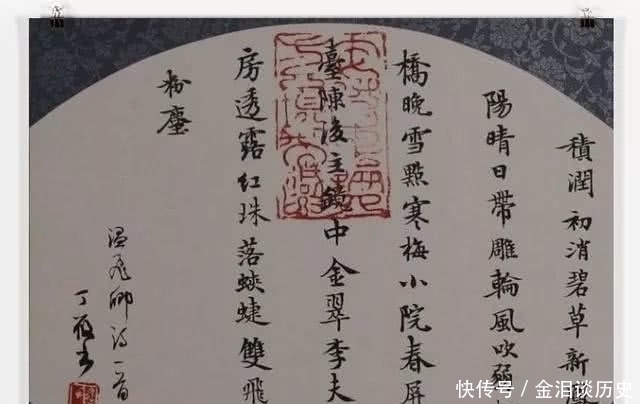 積潤初消碧草新鳳
陽晴日帶雕輪風吹弱
橋晚雪點寒梅小院春屏
臺陳後主鏡中金翠李夫
房透露紅珠落蛺蝶雙飛
粉塵
温飛卿詩一首
丁
快传号 / 金泪谈历史